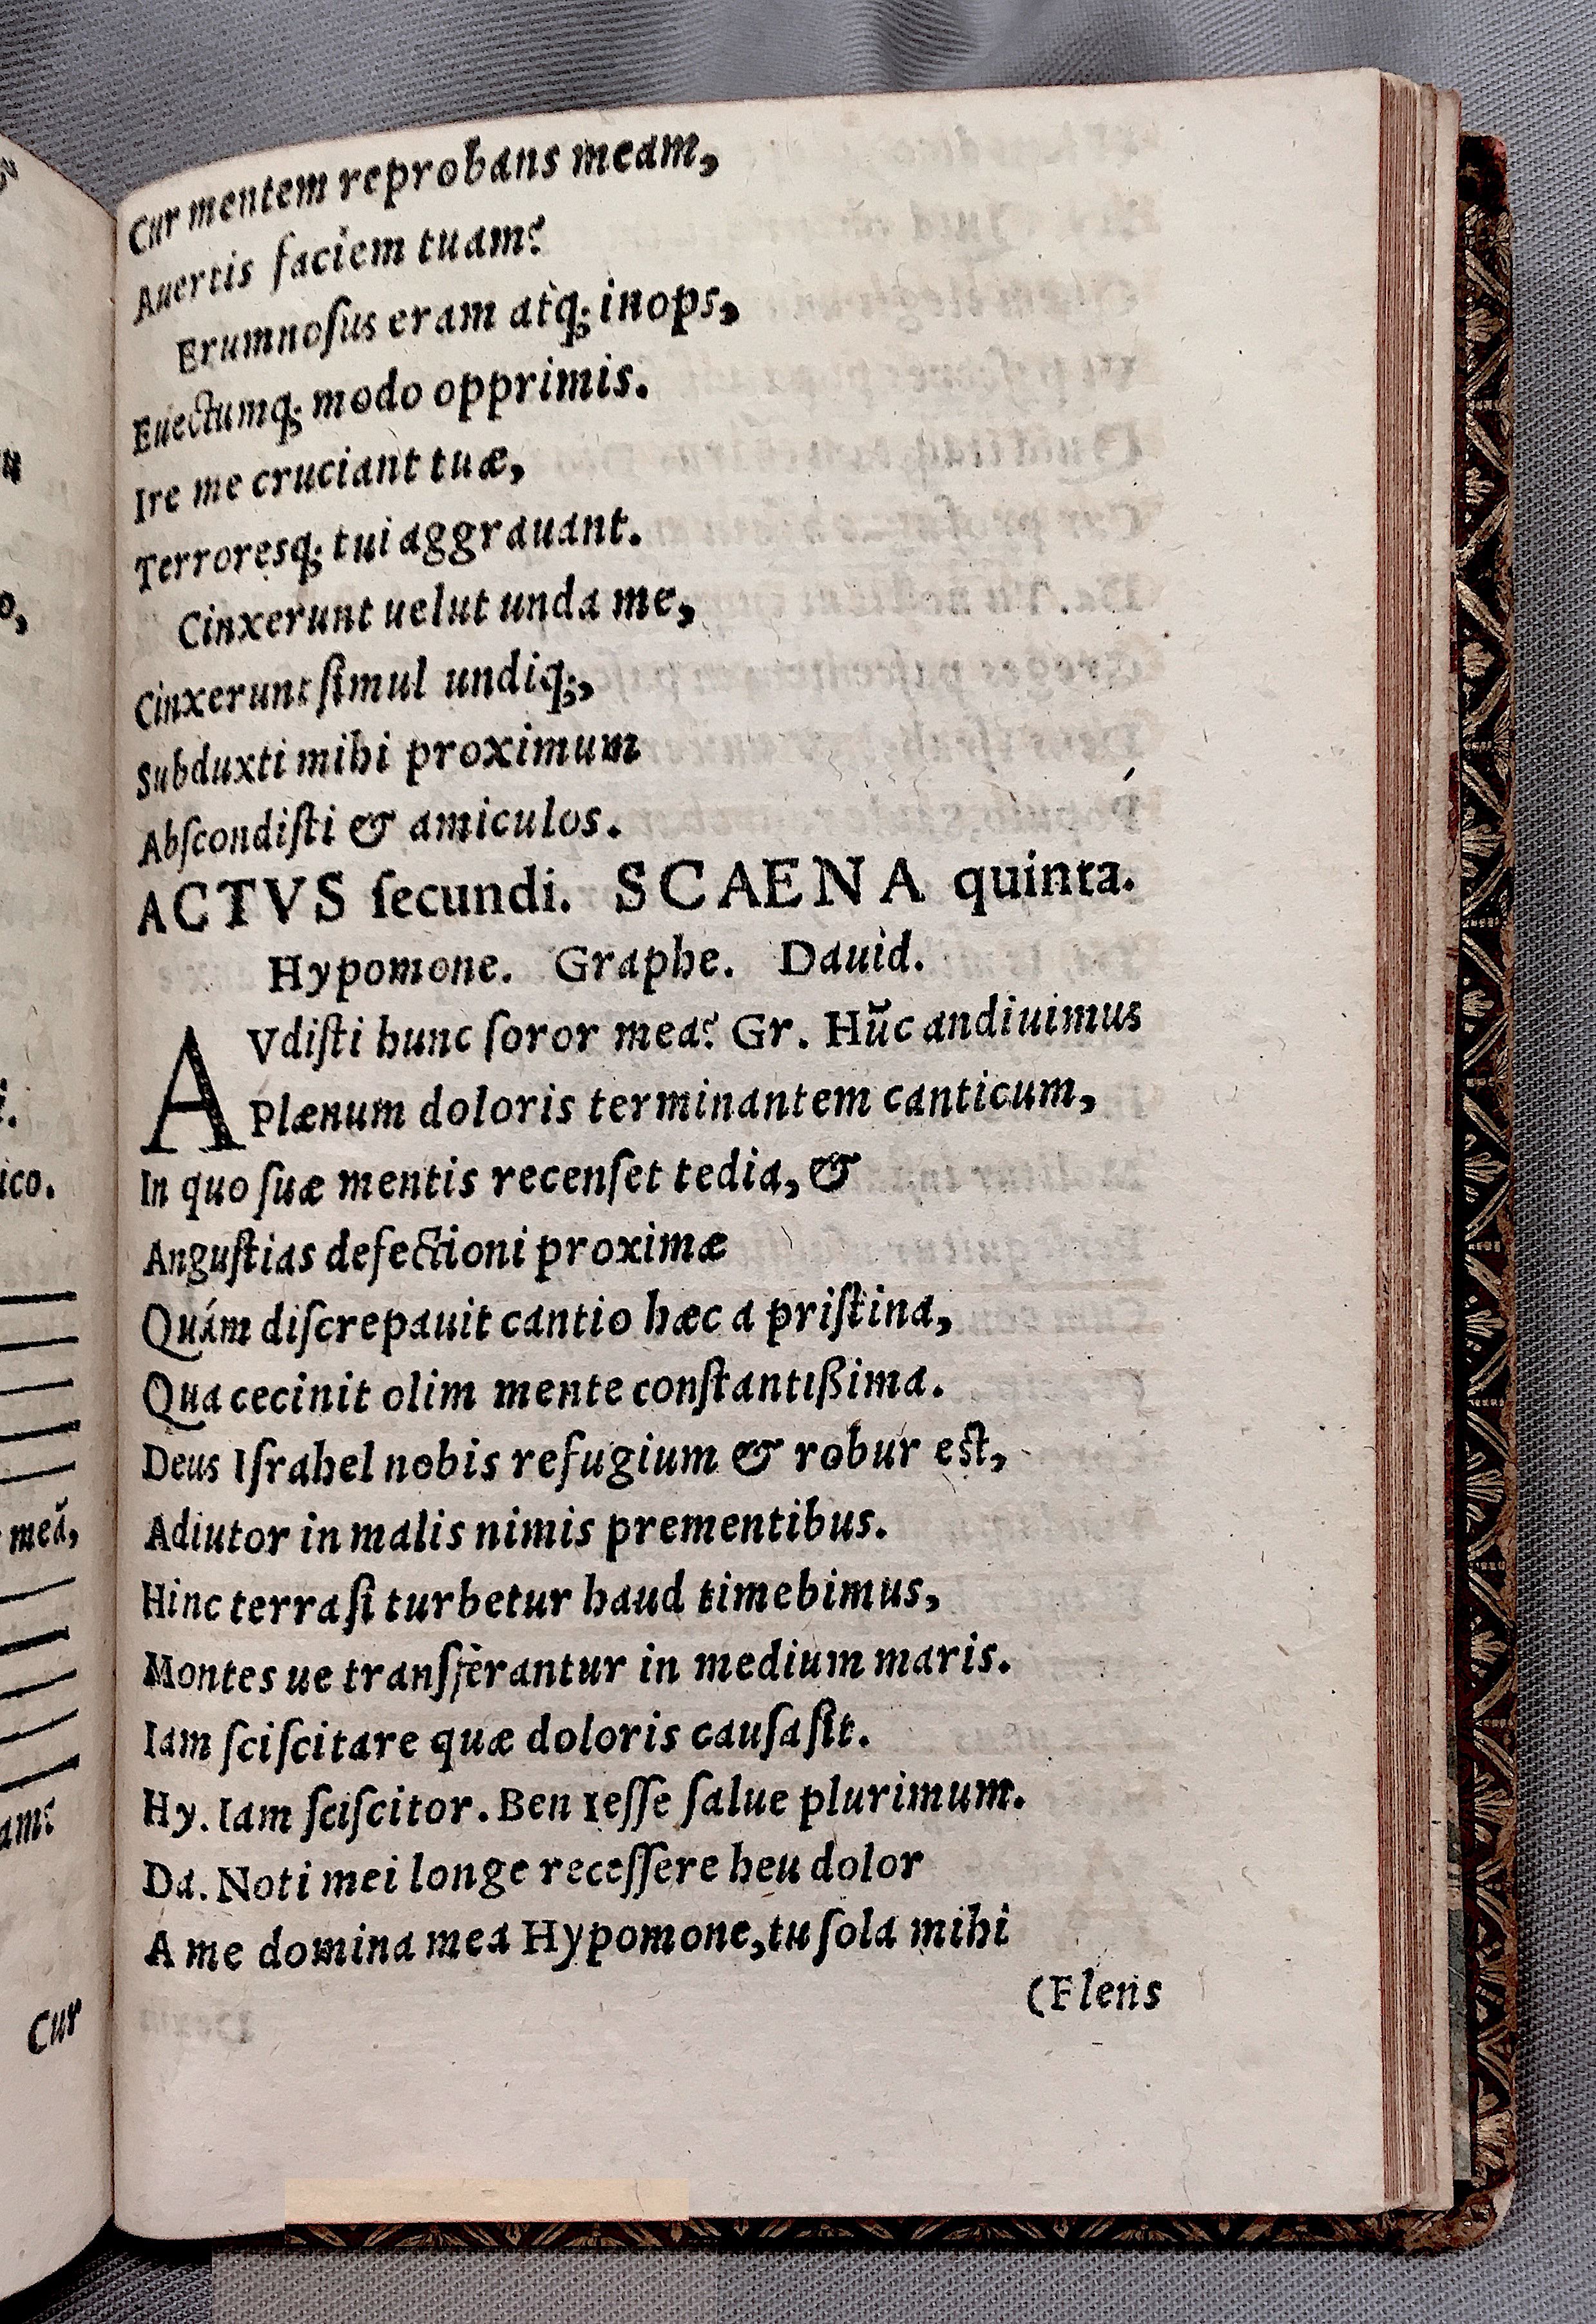 Cur mentem reprobans meam,
Auertis faciem tuam?
Erumnoſus eram atq; inops,
Euectumq; modo opprimis.
Ire me cruciant tuæ,
Terroresq; tui aggrauant.
Cinxerunt uelut unda me,
Cinxerunt ſimul undiq;,
Subduxti mihi proximum
Abſcondiſti & amiculos.
ACTVS ſecundi. SCAENA quinta.
Hypomone. Graphe. Dauid.
AVdiſti hunc ſoror mea? Gr. Hŭc andiuimus
Plænum doloris terminantem canticum,
In quo ſuæ mentis recenſet tedia, &
Anguſtias defectioni proximæ
Quám diſcrepauit cantio hæc a priſtina,
Qua cecinit olim mente conſtantißima.
Deus Iſrahel nobis refugium & robur eſt,
Adiutor in malis nimis prementibus.
Hinc terra ſi turbetur haud timebimus,
Montes ue transferantur in medium maris.
Iam ſciſcitare quæ doloris cauſa ſit.
Hy. Iam ſciſcitor. Ben Ieſſe ſalue plurimum.
Da. Noti mei longe receſſere heu dolor
A me domina mea Hypomone, tu ſola mihi
(Flens
o,
i.
ico.
meă,
am?
Cur